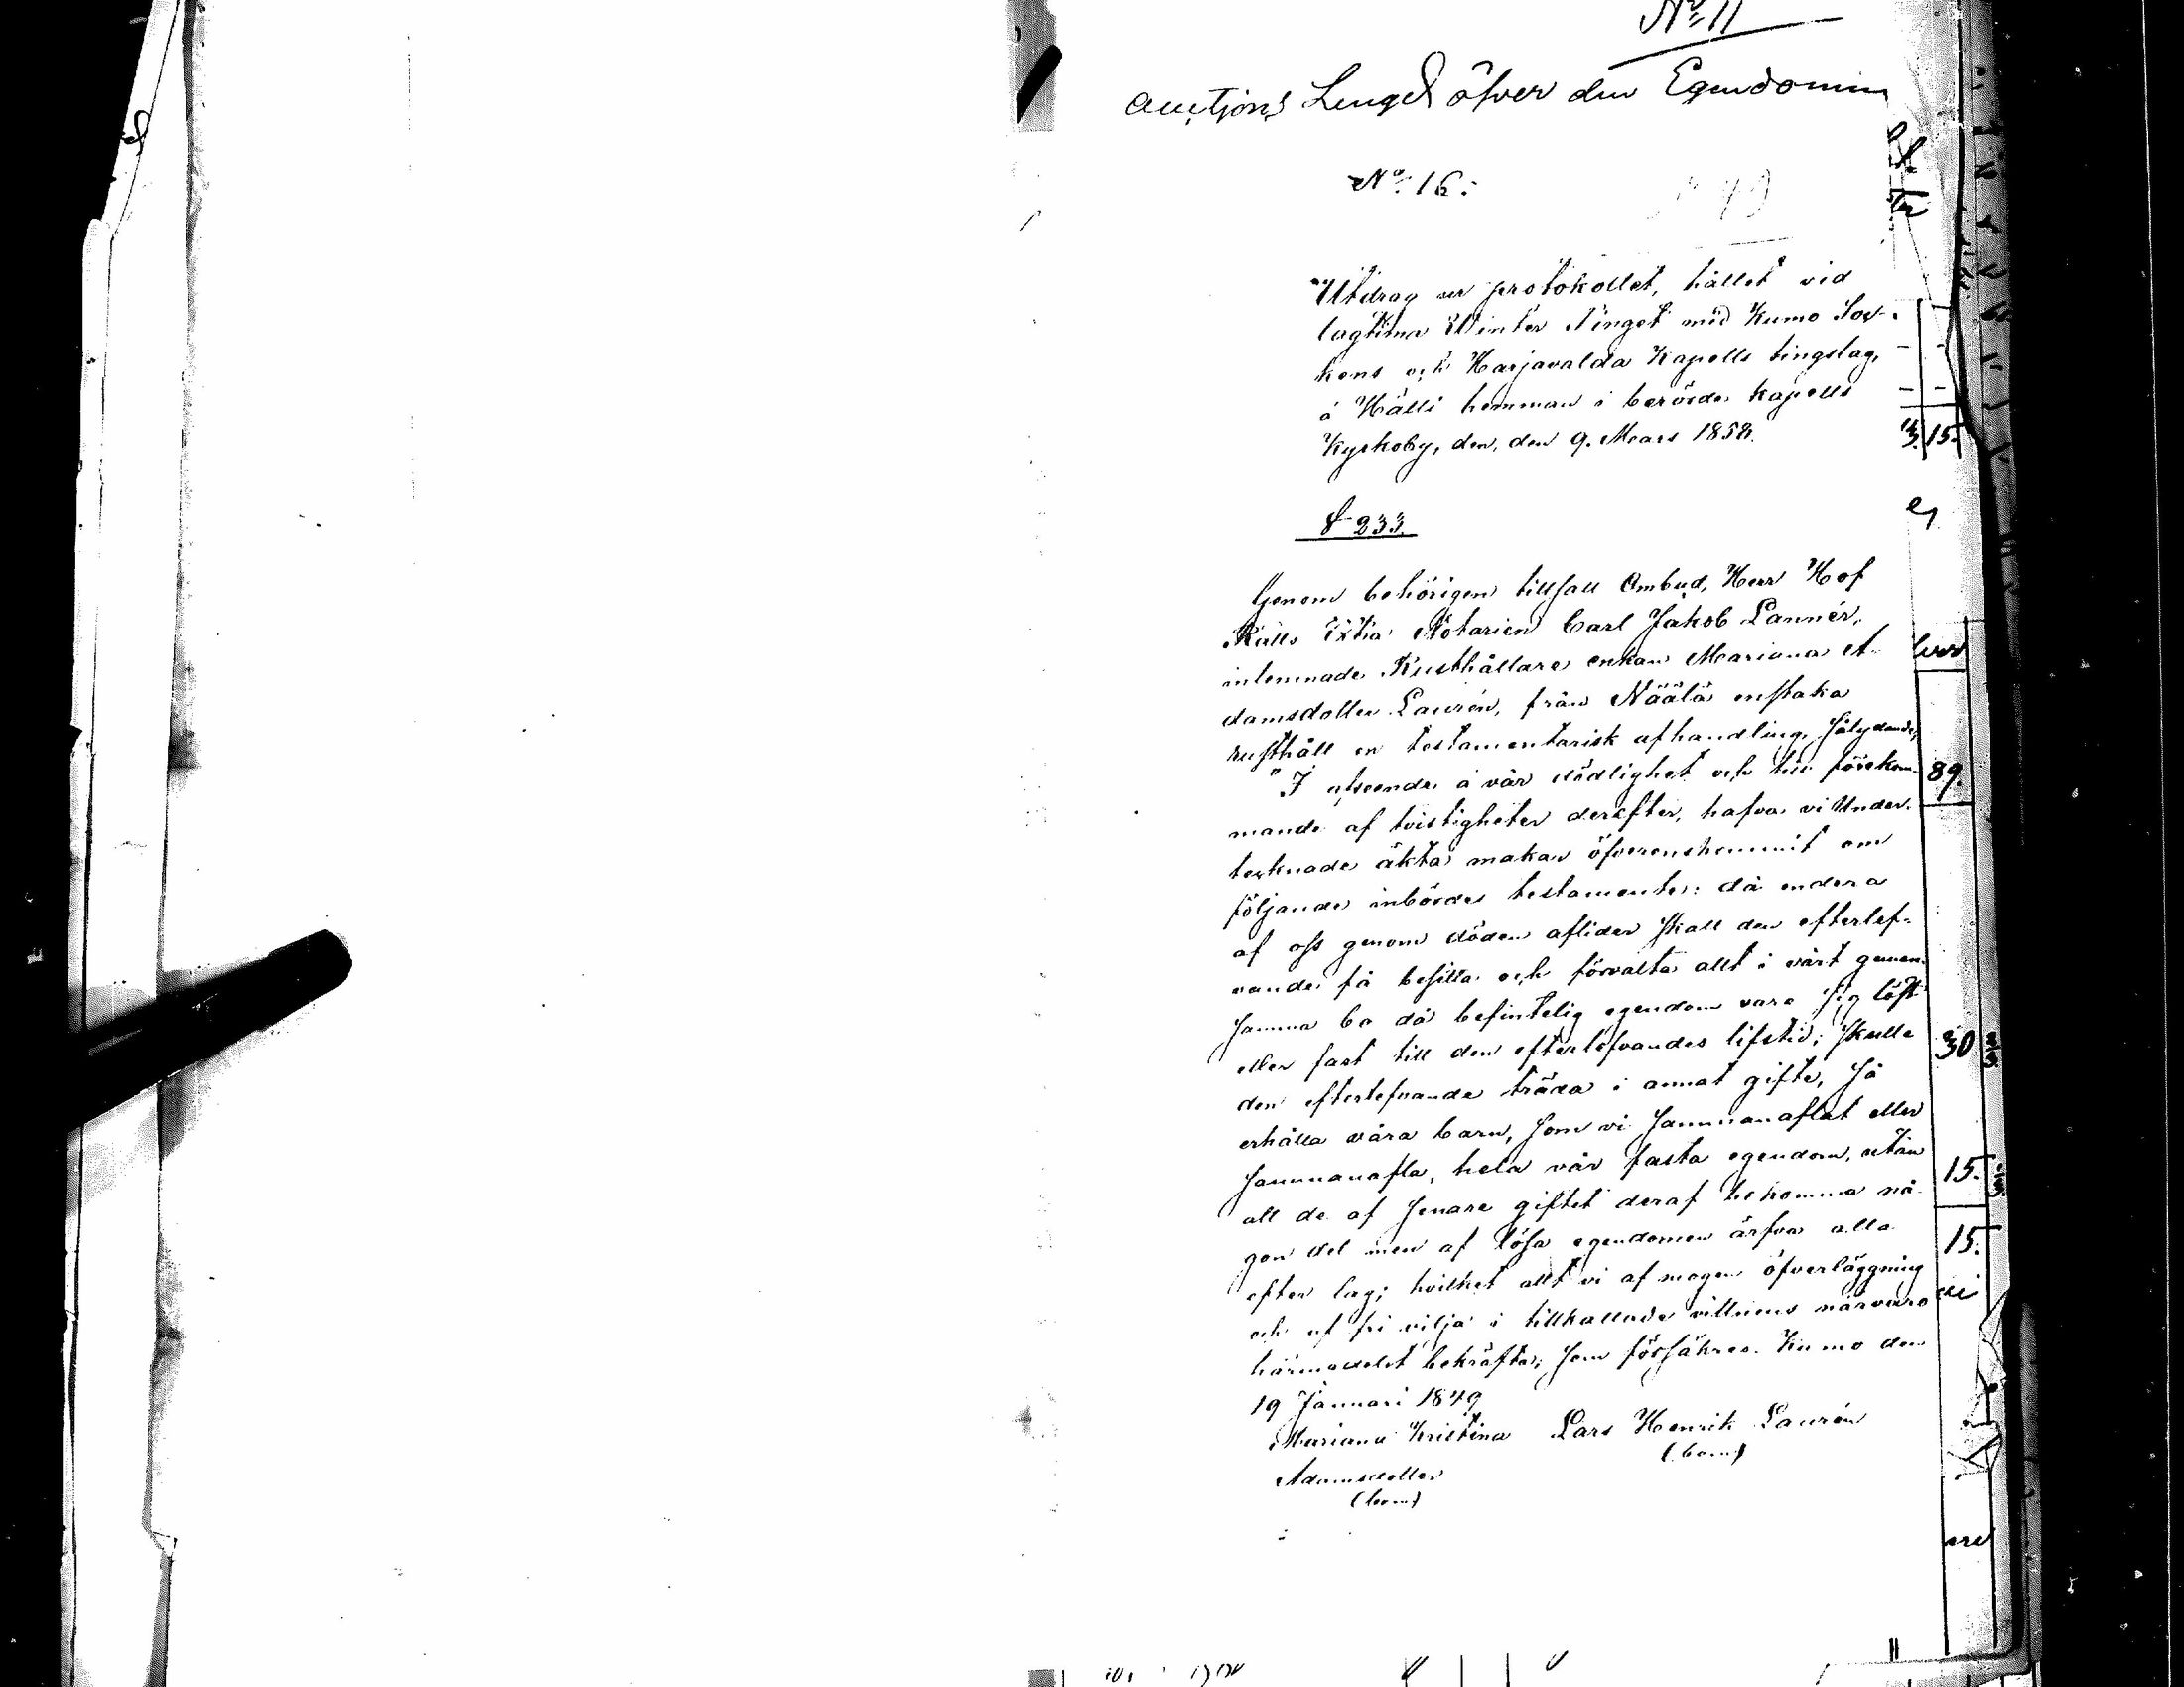 No 11
Auctjons Lengd öfver den Egendomm
No 16:
49
Utdrag ur protokollet, hållet vid
lagtima Winter Tinget med Kumo Soc-
kens och Harjavalda Kapells tingslag,
å Hälli hemman i berörde kapells
Kyrkoby, den, den 9. Mars 1858.
15.
§ 233.
Genom behörigen tillsatt Ombud, Herr Hof
Rätts Extra Notarien Carl Jakob Lannér,
inlemnade Rusthållare enkan Mariana A-
damsdotter Laurén, från Näälä enstaka
rusthåll en testamentarisk afhandling, sålydande,
"I afseende å vår dödlighet och till förekom-
89.
mande af tvistigheter derefter, hafva vi Under-
tecknade äkta makar öfverenskommit om
följande inbördes testamente: då endera
af oss genom döden aflider skall den efterlef-
vande få besitta och förvalta allt i vårt gemen-
samma bo då befintelig egendom vare sig löst
eller fast till den efterlefvandes lifstid; skulle
30
den efterlefvande träda i annat gifte, så
erhålla våra barn, som vi sammanaflat eller
sammanafla, hela vår fasta egendom, utan
15.
att de af senare giftet deraf bekomma nå-
gon del men af lösa egendomen ärfva alla
15.
efter lag; hvilket allt vi af mogen öfverläggning
och af fri vilja i tillkallade vittnens närvaro
härmedelst bekräfta, som försäkras. Kumo den
19 Januari 1849
Mariana Kristina Lars Henrik Laurén
(bom)
Adamsdotter
(bom)